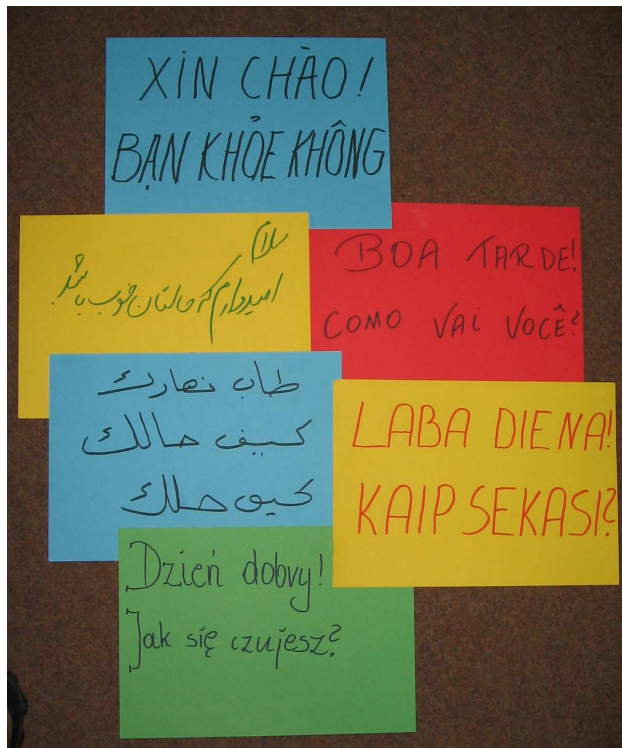 XIN CHÀO!
BẠN KHỎE KHÔNG
سلام
امیدوارم که حالتان خوب باشد.
BOA TARDE!
COMO VAI VOCÊ?
طاب نهارك
كيف حالك
كيف حلك
LABA DIENA!
KAIP SEKASI?
Dzień dobry!
Jak się czujesz?